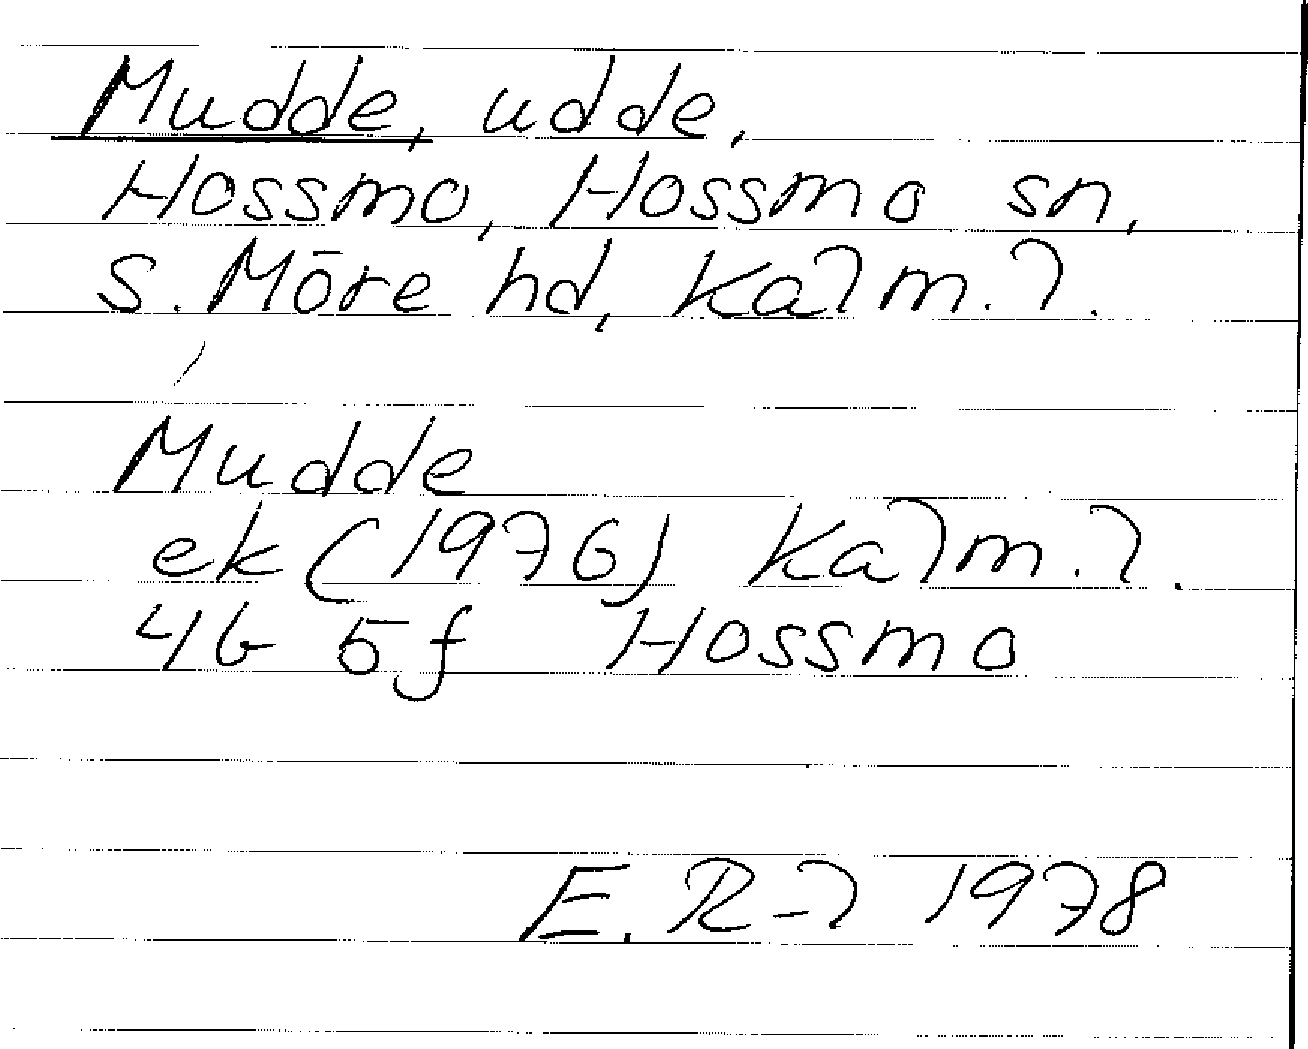 Mudde, udde,
Hossmo, Hossmo sn,
S. Möre hd, Kalm. l.
Mudde
ek (1976) Kalm. l.
4G 5f Hossmo
E. R-l 1978